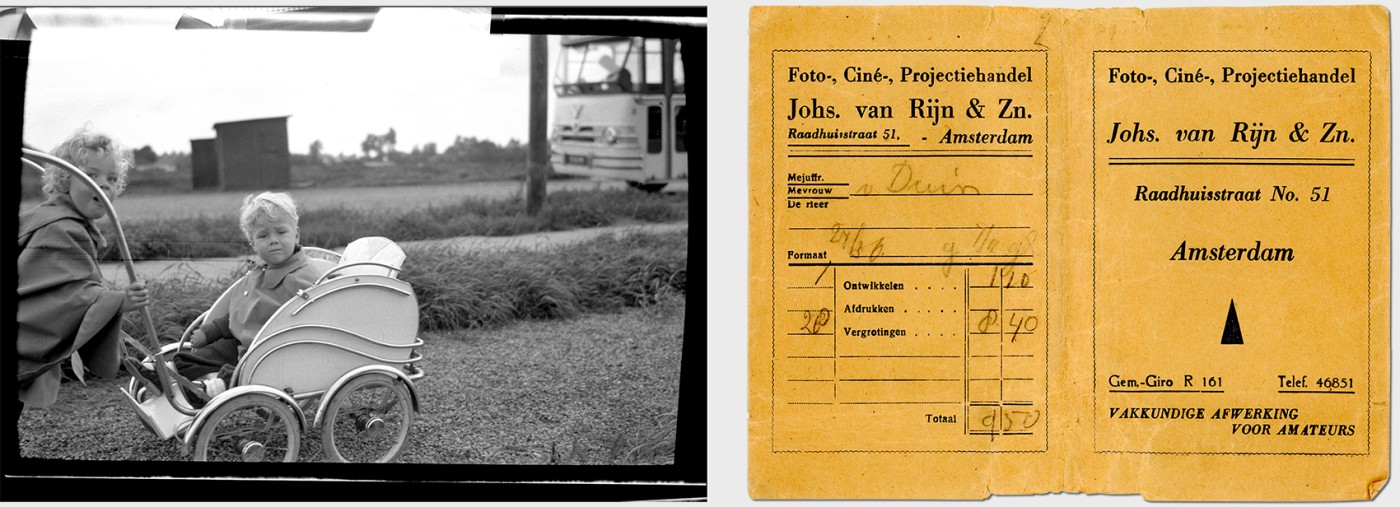 Foto-, Ciné-, Projectiehandel
Johs. van Rijn & Zn.
Raadhuisstraat 51. - Amsterdam
Mejuffr.
Mevrouw v Duin
De Heer
Formaat
1 Ontwikkelen . . . . 1 10
Afdrukken . . . .
28 Vergrotingen . . . . 8 40
Totaal 9 50
Foto-, Ciné-, Projectiehandel
Johs. van Rijn & Zn.
Raadhuisstraat No. 51
Amsterdam
Gem.-Giro R 161 Telef. 46851
VAKKUNDIGE AFWERKING
VOOR AMATEURS